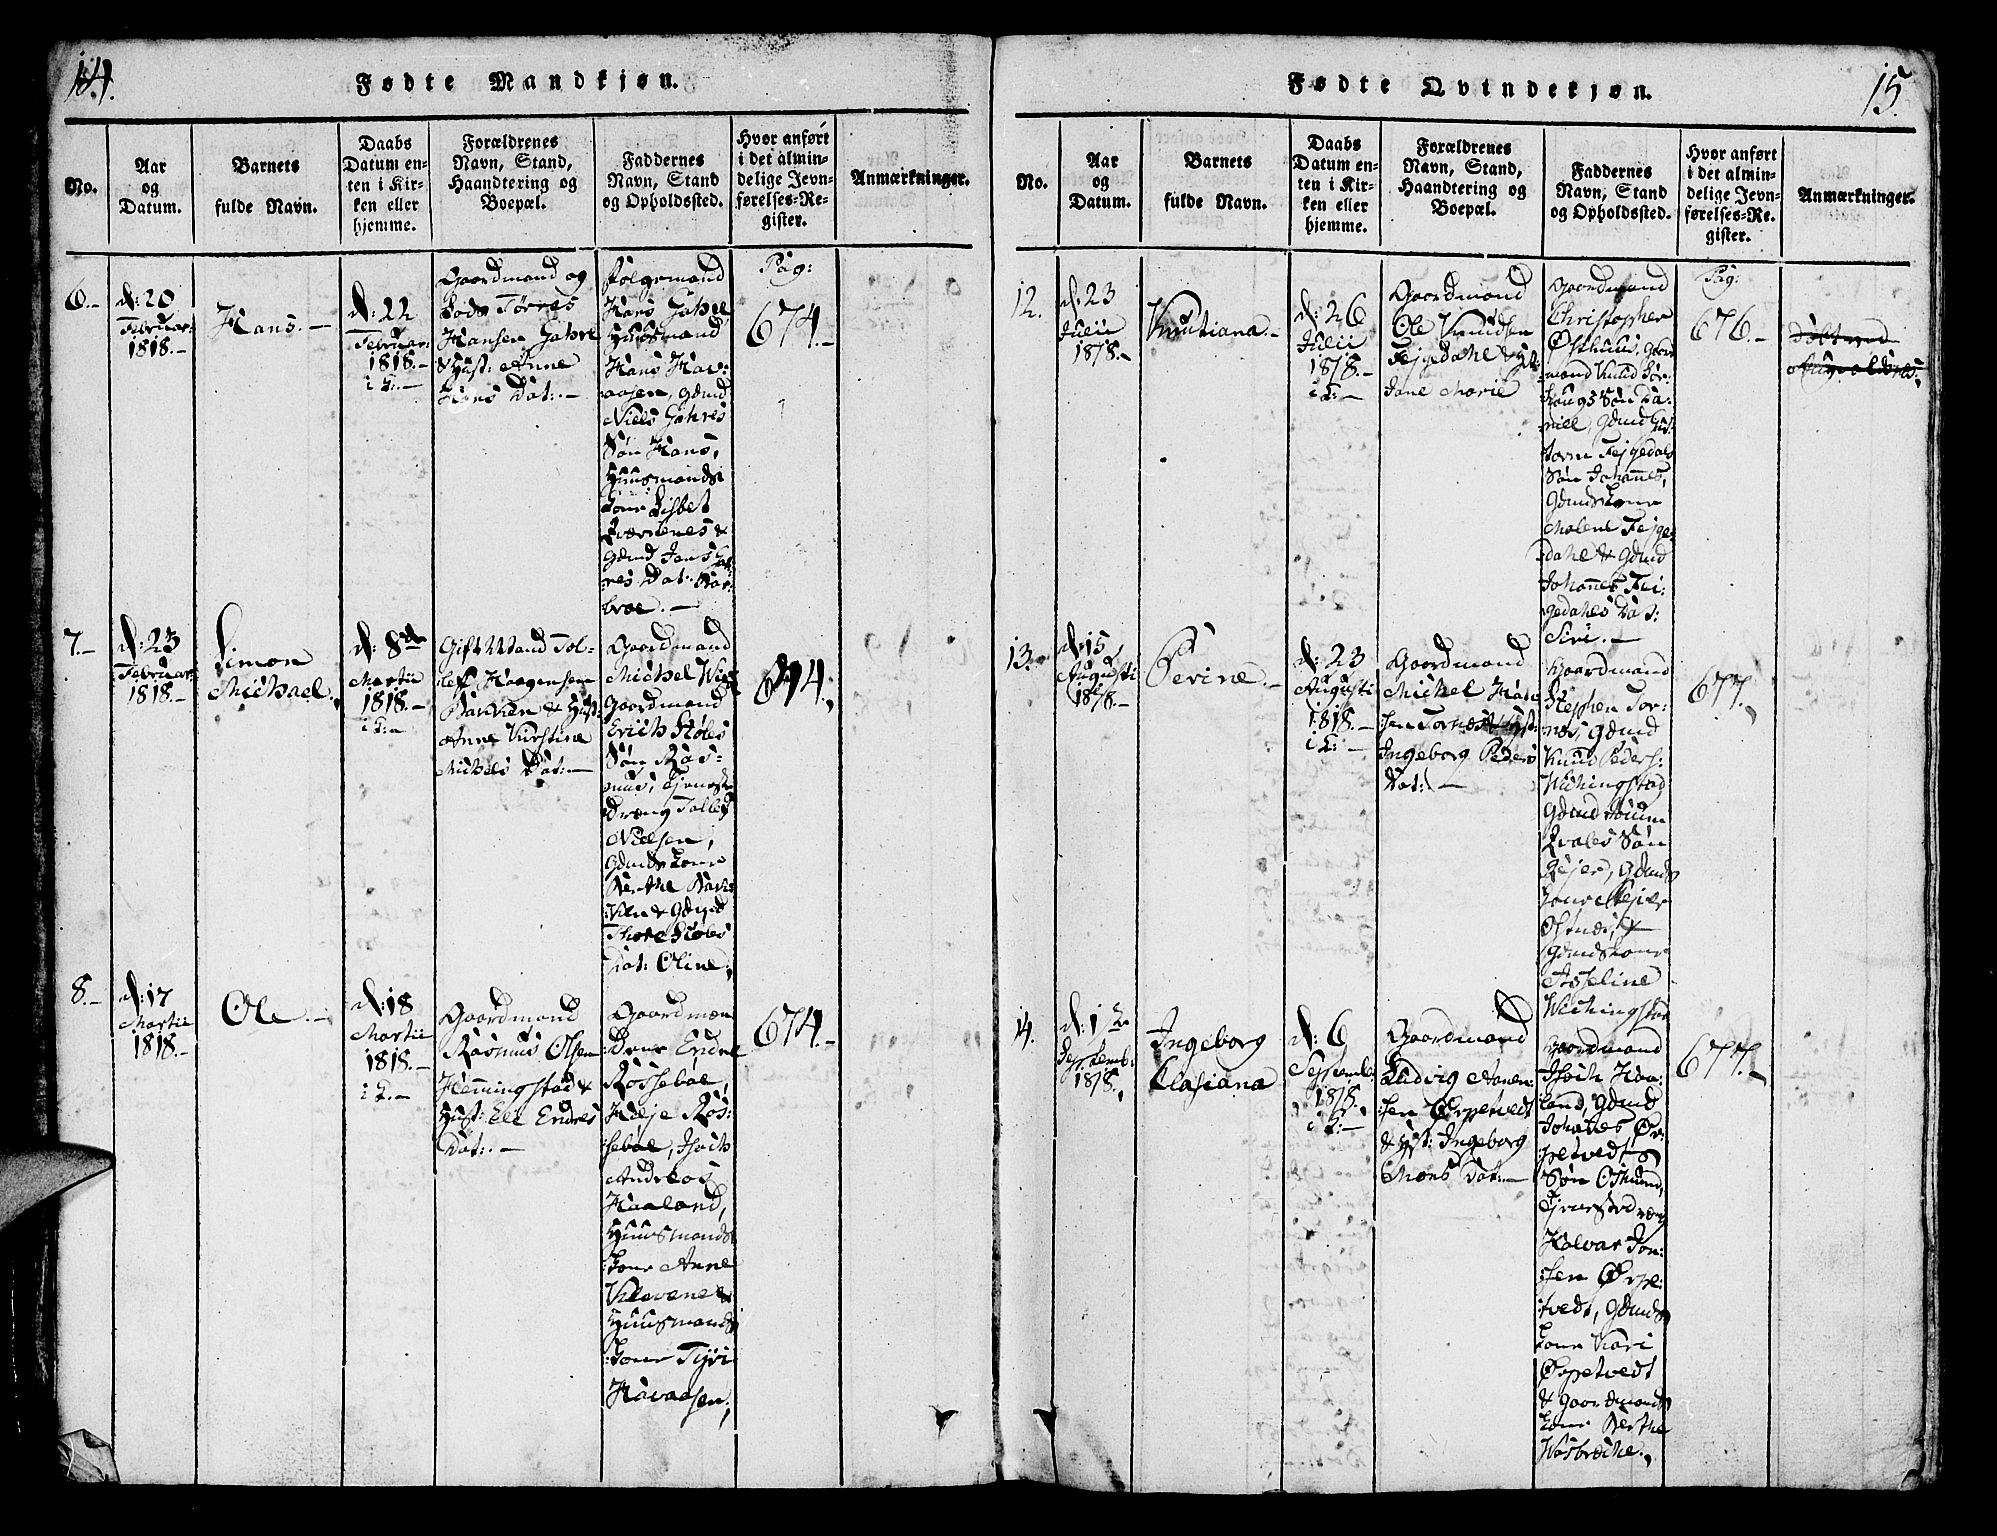 14.
Fødte Mandkjøn.
No.
Aar
og
Datum.
Barnets
fulde Navn.
Daabs
Datum en-
ten i Kir-
ken eller
hjemme.
Forældrenes
Navn, Stand,
Haandtering og
Boepæl.
Faddernes
Navn, Stand
og Opholdssted.
Hvor anført
i det almin-
delige Jevn-
førelses-Re-
gister.
Anmærkninger.
6.-
d: 20
Februar:
1818.-
Hans.-
d: 22
Februar:
1818.-
i K:-
Gaardmand og
Lods Tørres
Hansen Gahre
& Hust: Anne
Hans Dat:-
Hans Gahre,
Huusmand
Hans Hav:
aasen, Gdmd
Niels Gahres
Søn Hans,
Huusmands
Kone Lisbet
Qværnenes &
Gdmd Jans Gah
res Dat: Bar-
broe.-
Pag:
674.-
7.-
d: 23
Februar:
1818.-
Simon
Michael.
d: 8de
Martii
1818.-
i K:-
Gift Mand Tol-
lef Haagensen
Bakken & Hust:
Anne Kirstine
Michels Dat:-
Gaardmand
Michel Wiig
Gaardmand
Erich Stoles
Søn Ras-
mus, Tjeneste
Dreng Tollef
Nielsen,
Gdmds Kone
Berthe Bak:
:ken & Gdmd
Thore Stoles
Dat: Oline,
674.
8.-
d: 17
Martii
1818.-
Ole.-
d: 18
Martii
1818.-
i K.-
Gaardmand
Rasmus Olsen
Hemmingstad &
Hust: Eli Endres
Dat:-
Gaardmæn
dene Endre
Rossebøe,
Helje Ros:
:sebøe, Isach
Andreas
Haaland,
Huusmands
:Kone Anne
Klovene &
Huusmands
:Kone Tyri
Havaasen,
674.-
15.
Fødte Qvindekjøn.
No.
Aar
og
Datum.
Barnets
fulde Navn.
Daabs
Datum en-
ten i Kir-
ken eller
hjemme.
Forældrenes
Navn, Stand,
Haandtering og
Boepæl.
Faddernes
Navn, Stand
og Opholdssted.
Hvor anført
i det almin-
delige Jevn-
førelses-Re-
gister.
Anmærkninger.
12.
d: 23
Julii
1818.-
Knutiana.-
d: 26
Julii
1818.-
i K:-
Gaardmand
Ole Knudsen
Fejgedahl & H:
Jane Marie
Gaardmand
Christopher
Østhuus, Gaard
mand Knud Sør-
hougs Søn Da-
niel, Gdmd Gut-
torm Fejgedals
Søn Johannes,
Gdmds Kone
Malene Fejge
dahl & Gdmd
Johannes Fei-
gedahls Dat:
Siri.-
Pag:
676.-
13.
d: 15
Augusti
1818.-
Perine.-
d: 23
Augusti
1818.-
i K:-
Gaardmand
Michel Han
:sen Tornes & Hust:
Ingeborg Peders
Dat:-
Gaardmand
Stephen Tor-
næs, Gdmd
Knud Peders:
Wichingstad
Gdmd
Qvales Søn
Rejer, Gdmds
Kone
Østnæs, &
Gdmds Kone
Asseline
Wichingstad
677.
14.
d: 1te
Septemb:
1818,
Ingeborg
Elasiana
d: 6
Septemb:
1818.
i K:-
Gaardmand
Ludvig Aanen:
:sen Ørpetvedt
& Hst: Ingeborg
Mons Dat:-
Gaardmand
Isach Haa:
land, Gdmd
Johannes Ør:
:petvedts
Søn Osmund,
Tjenestedreng
Halvar Jon:
:sen Ørpe:
:tvedt, Gdmds
Kone Kari
Ørpetvedt
& Gaardmands
Kone Berthe
677.-